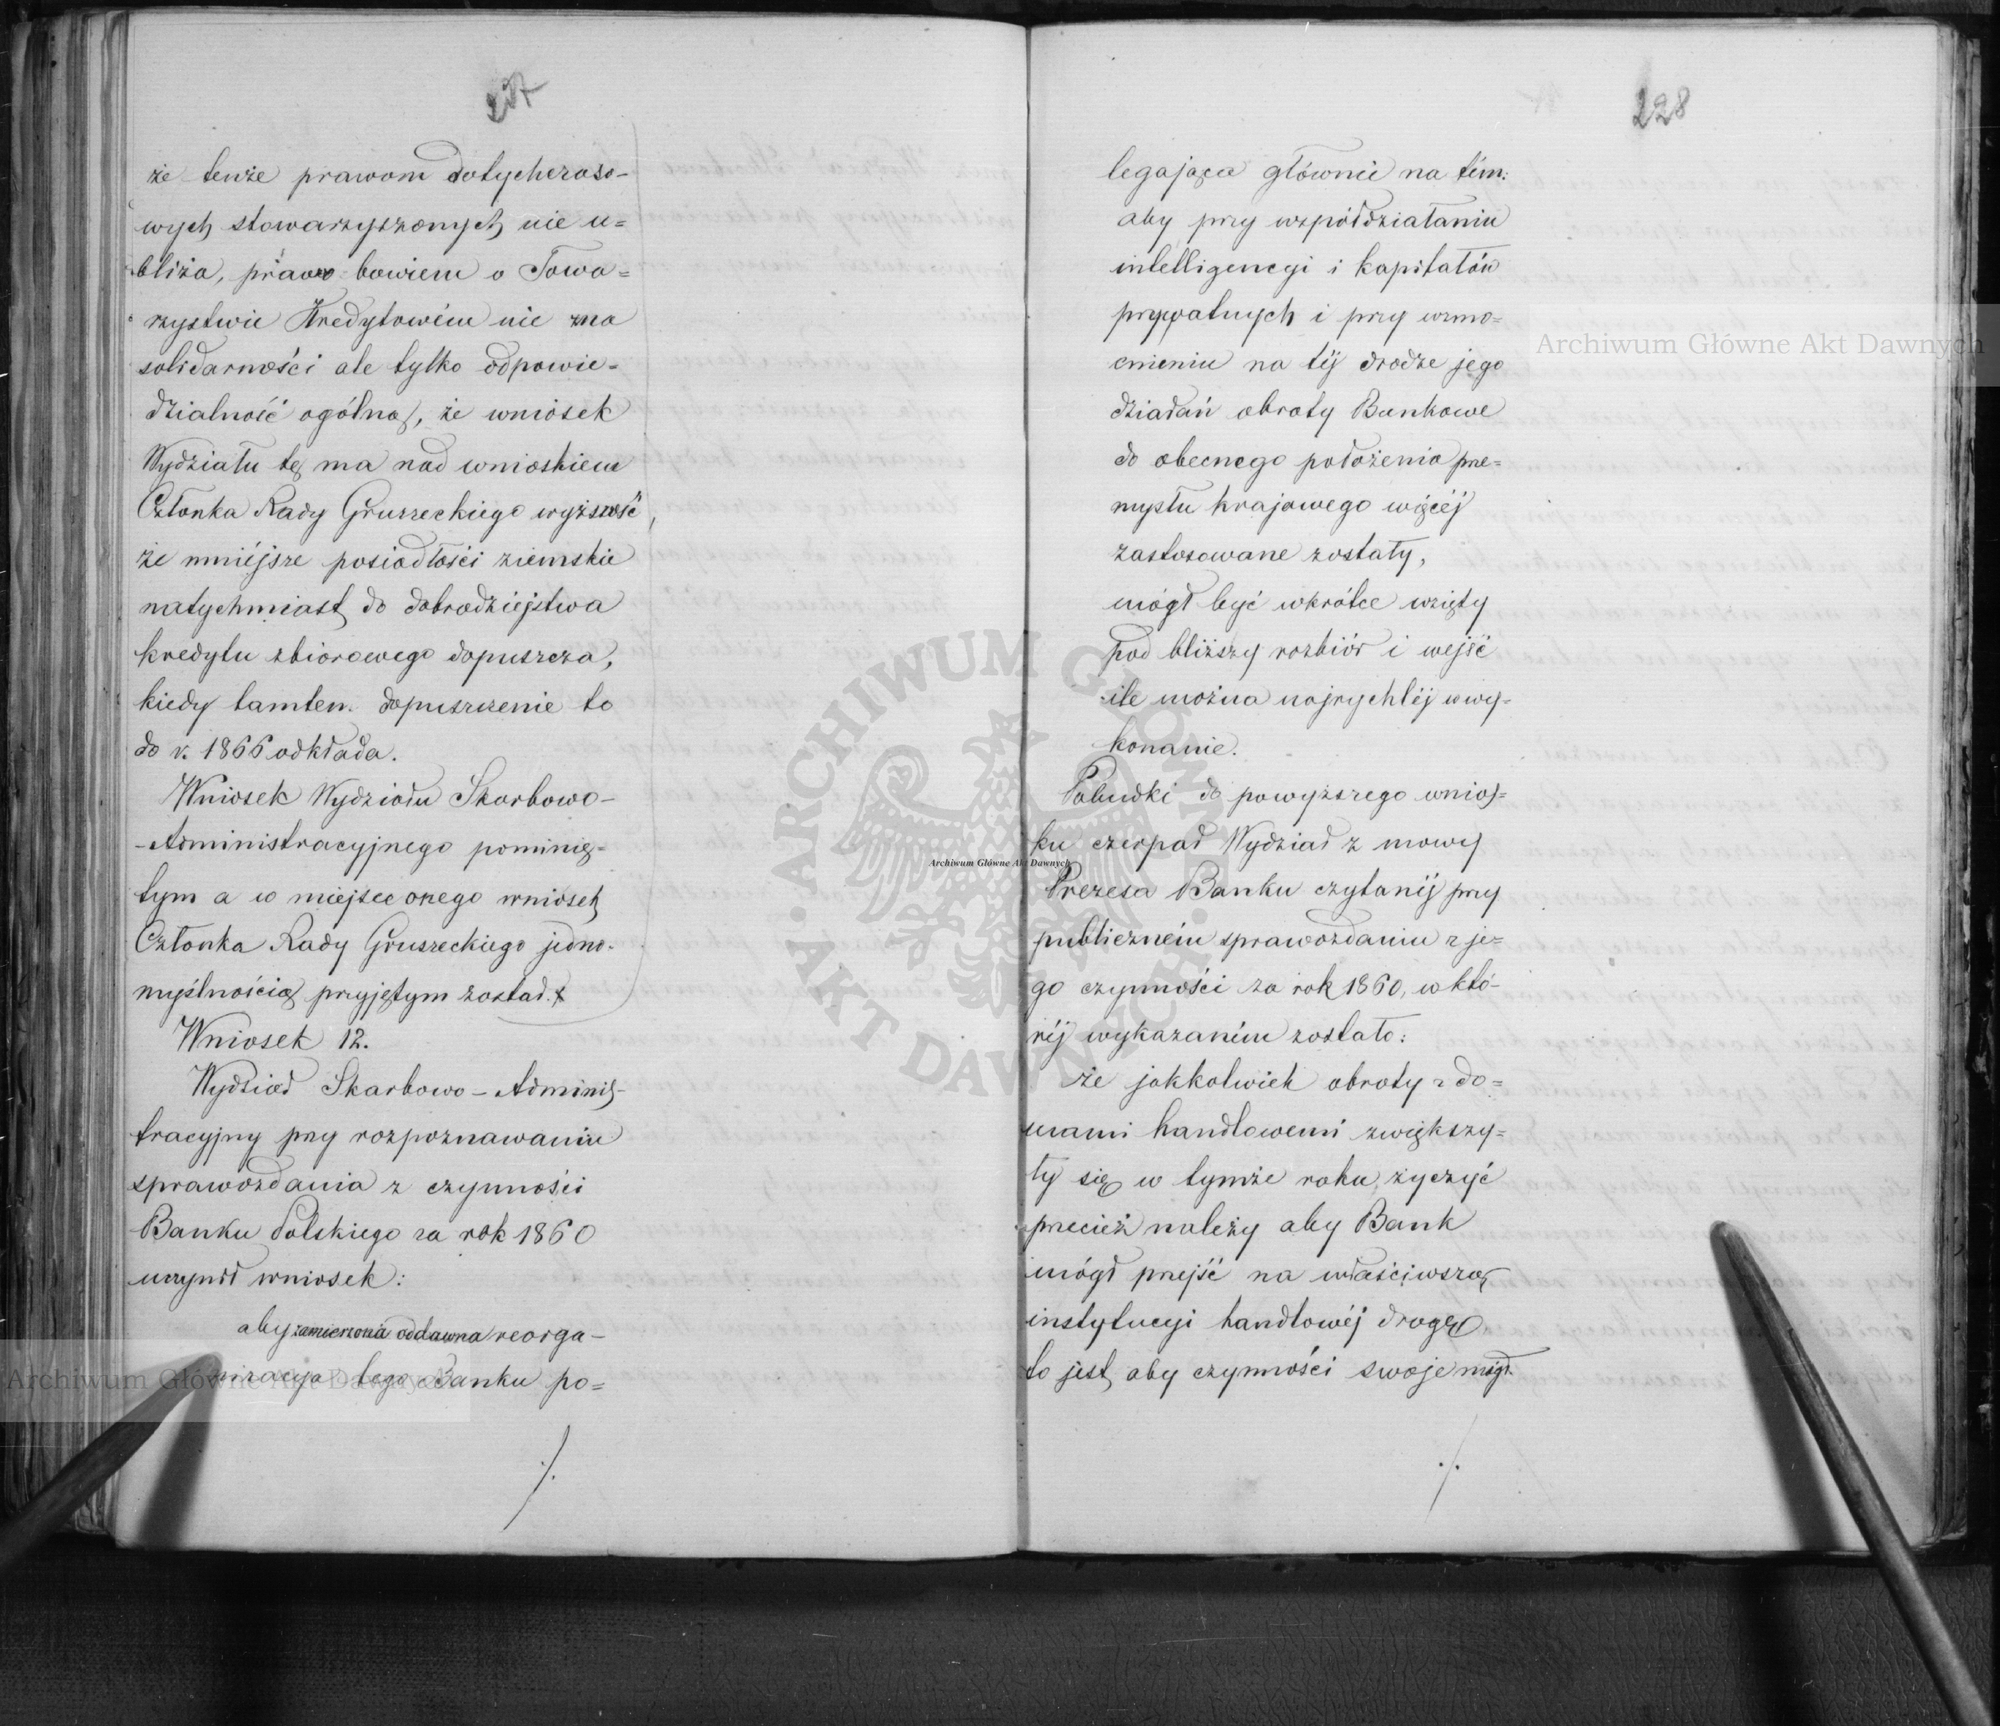 227
że tenże prawom dotychczaso-
wych stowarzyszonych nie u=
bliża, prawo bowiem o Towa=
rzystwie Kredytowém nie zna
solidarności ale tylko odpowie=
dzialność ogólną, że wniosek
Wydziału tę ma nad wnioskiem
Członka Rady Gruszeckiego wyższość,
że mniéjsze posiadłości ziemskie
natychmiast do dobrodziejstwa
kredytu zbiorowego dopuszcza,
kiedy tamten dopuszczenie to
do r. 1866 odkłada.
Wniosek Wydziału Skarbowo-
-Administracyjnego pominię=
tym a w miejsce onego wniosek
Członka Rady Gruszeckiego jedno-
myślnością przyjętym został.
Wniosek 12.
Wydział Skarbowo-Adminis-
tracyjny przy rozpoznawaniu
sprawozdania z czynności
Banku Polskiego za rok 1860
uczynił wniosek:
aby zamierzona oddawna reorga-
nizacya tego Banku po=
./.
228
legająca głównie na tém:
aby przy współdziałaniu
intelligencyi i kapitałów
prywatnych i przy wzmo=
cnieniu na téj drodze jego
działań obroty Bankowe
do obecnego położenia prze=
mysłu krajowego więcéj
zastosowane zostały,
mógł być wkrótce wzięty
pod bliższy rozbiór i wejść
ile można najrychléj w wy-
konanie.
Pobudki do powyższego wnios=
ku czerpał Wydział z mowy
Prezesa Banku czytanéj przy
publiczném sprawozdaniu z je=
go czynności za rok 1860, w któ-
réj wykazaném zostało:
że jakkolwiek obroty z do=
mami handlowemi zwiększy=
ły się w tymże roku, życzyć
przecież należy aby Bank
mógł przejść na właściwszą
instytucyi handlowéj drogę
to jest aby czynności swoje mógł
./.
Archiwum Główne Akt Dawnych
Archiwum Główne Akt Dawnych
Archiwum Główne Akt Dawnych
ARCHIWUM GŁÓWNE · AKT DAWNYCH ·